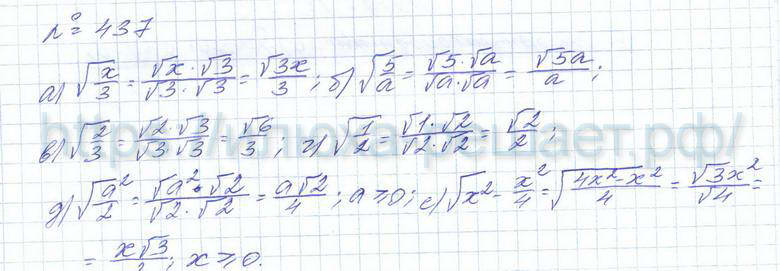 № 437
а) √x/3 = √x · √3 / √3 · √3 = √3x / 3 ; б) √5/a = √5 · √a / √a · √a = √5a / a ;
в) √2/3 = √2 · √3 / √3 √3 = √6 / 3 ; г) √1/2 = √1 · √2 / √2 · √2 = √2 / 2 ;
д) √a²/2 = √a² · √2 / √2 · √2 = a√2 / 4 ; a ≥ 0 ; е) √x² - x²/4 = √4x² - x² / 4 = √3x² / √4 =
= x√3 / ; x ≥ 0.